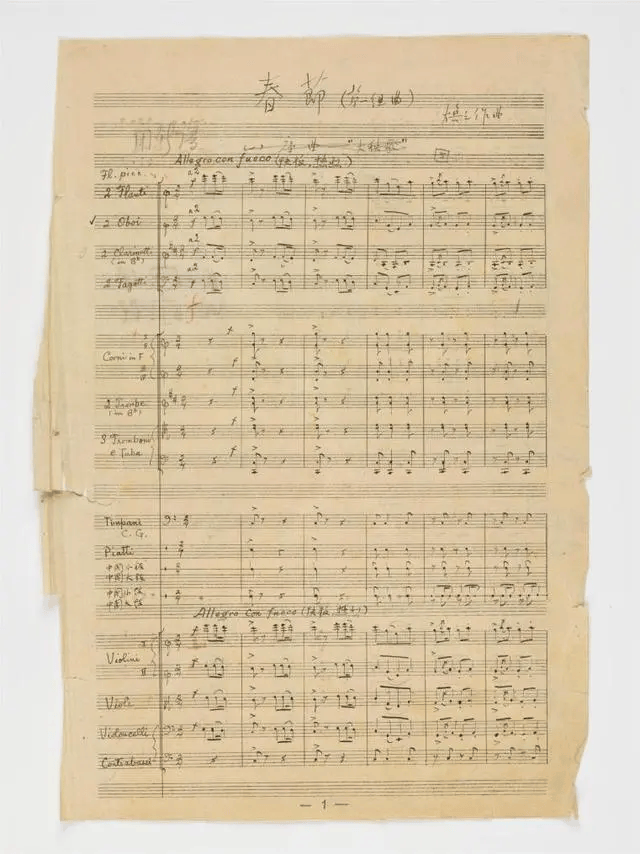 春節 (第一组曲)
模之作曲
(一) 序曲——"大秧歌"
Allegro con fuoco (快板,热烈)
Fl. picc.
2 Flauti
a2
2 Oboi
a2
2 Clarinetti
(in Bb)
a2
2 Fagotti
a2
Corni in F
2 Trombe
(in Bb)
3 Tromboni
e Tuba
Timpani
C. G.
Piatti
中国小钹
中国大钹
中国小鼓
Allegro con fuoco (快板,热烈)
I
Violini
II
Viole
Violoncelli
Contrabassi
— 1 —